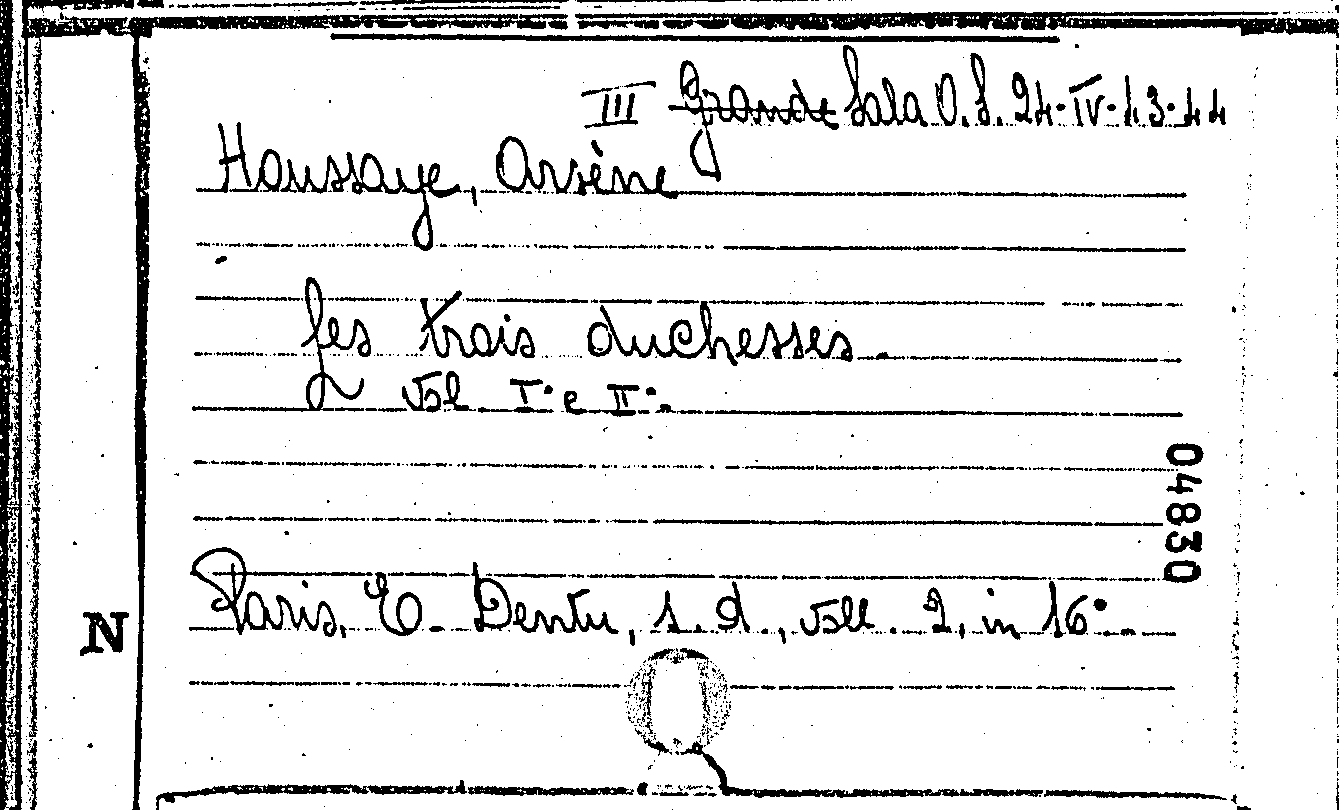 III Grande Sala O.S. 24-IV-43-44
Houssaye, Arsène
Les trois duchesses.
2 vol I° e II°.
04830
Paris, E. Dentu, s. d., voll. 2, in 16°.
N